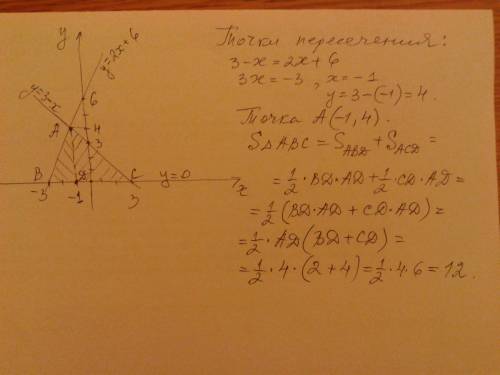 y
y=2x+6
6
y=3-x
A
4
3
B
D
C
y=0
x
-3
-1
3
Точки пересечения:
3-x=2x+6
3x=-3, x=-1
y=3-(-1)=4.
Точка A(-1,4).
SΔABC = S_ABD + S_ACD =
= 1/2 · BD · AD + 1/2 · CD · AD =
= 1/2 (BD · AD + CD · AD) =
= 1/2 · AD (BD + CD) =
= 1/2 · 4 · (2+4) = 1/2 · 4 · 6 = 12.